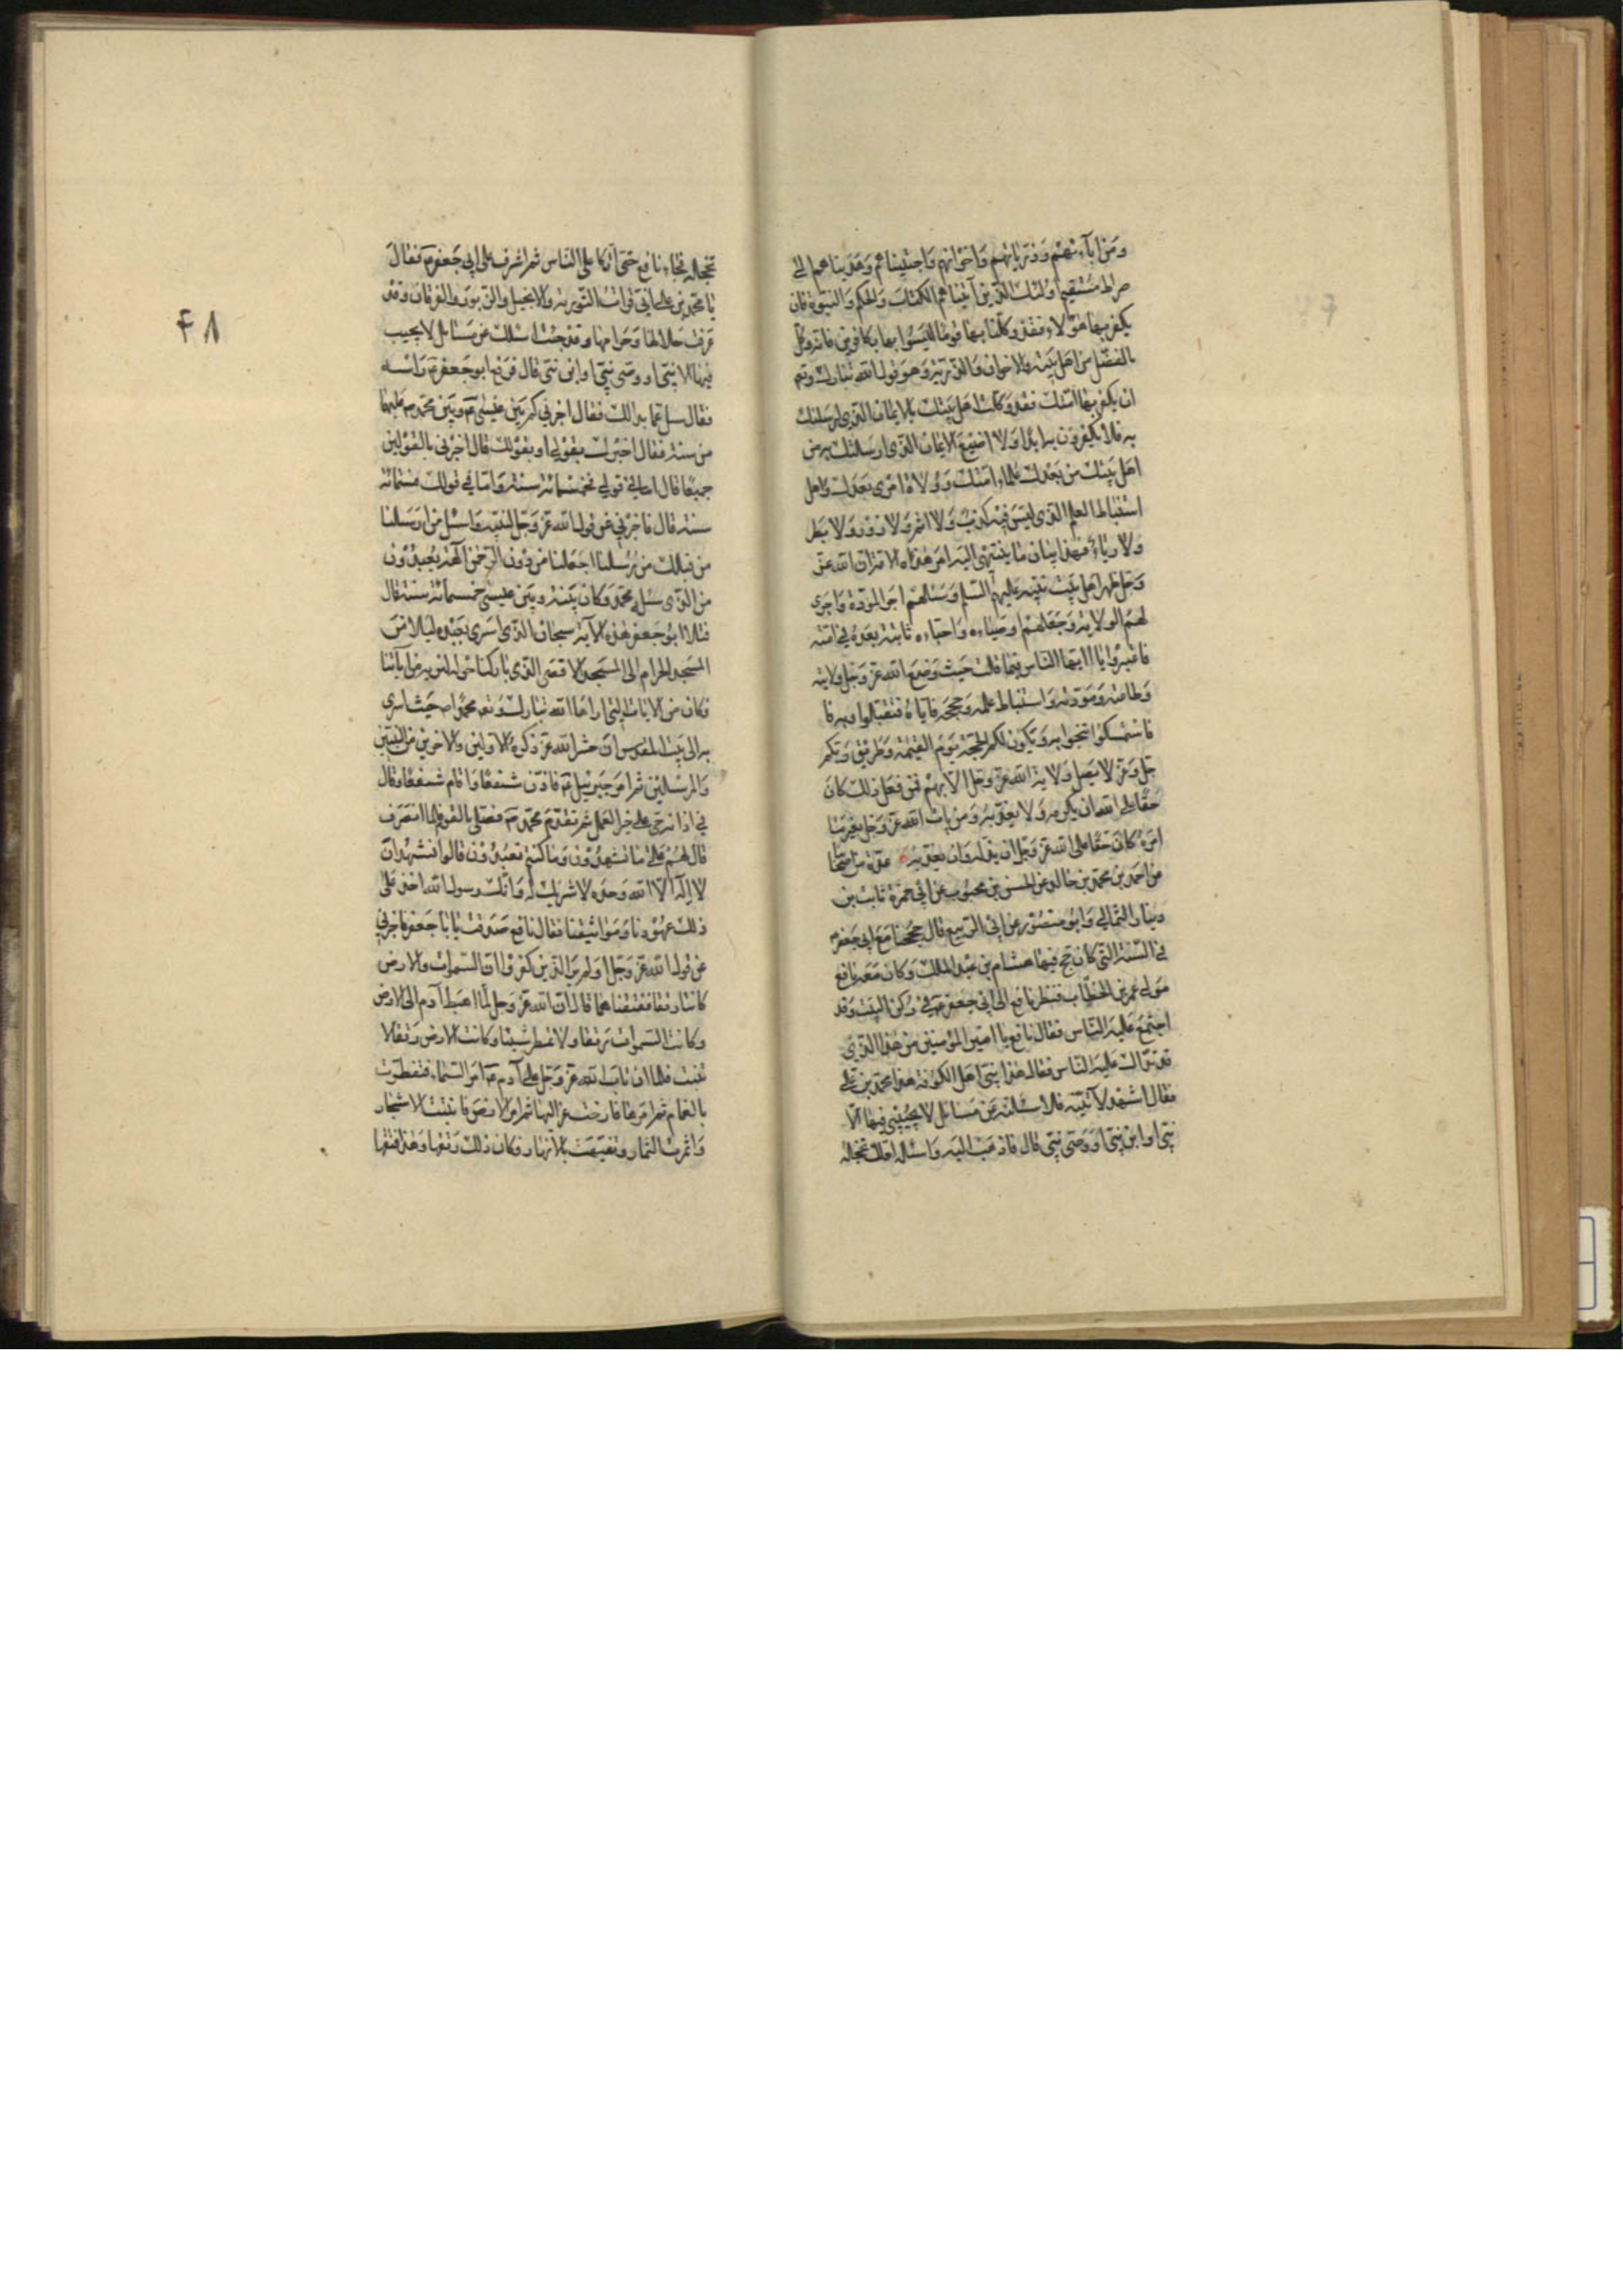 ومن آبائهم وذرياتهم واخوانهم واجتبيناهم وهديناهم الى
صراط مستقيم اولئك الذين آتيناهم الكتاب والحكم والنبوة فان
يكفر بها هؤلاء فقد وكلنا بها قوما ليسوا بها بكافرين فانه وكل
بالفضل من اهل بيته والاخوان والذرية وهو قول الله تبارك وتع
ان يكفر بها امتك فقد وكلت اهل بيتك بالايمان الذي ارسلتك
به فلا يكفرون به ابدا ولا اضيع الايمان الذي ارسلتك به من
اهل بيتك من بعدك علماء امتك وولاة امري بعدك واهل
استنباط العلم الذي ليس فيه كذب ولا اثم ولا زور ولا بطر
ولا رياء فهذا بيان ما ينتهي اليه امر هذه الامة ان الله عز
وجل طهر اهل بيت نبيه عليهم السلم وسئلهم اجر المودة واجرى
لهم الولاية وجعلهم اوصياءه واحباءه ثابتة بعده في امته
فاعتبروا يا ايها الناس فيما قلت حيث وضع الله عز وجل ولايته
وطاعته ومودته واستنباط علمه وحججه فاياه فتقبلوا وبه فا
فاستمسكوا تنجوا به وتكون لكم الحجة يوم القيمة وطريق ربكم
جل وعز لا يصل ولاية الله عز وجل الا بهم فمن فعل ذلك كان
حقا على الله ان يكرمه ولا يعذبه ومن يات الله عز وجل بغير ما
امره كان حقا على الله عز وجل ان يذله وان يعذبه عدة من اصحابنا
عن احمد بن محمد بن خالد عن الحسن بن محبوب عن ابي حمزة ثابت بن
دينار الثمالي وابو منصور عن ابي الربيع قال حججنا مع ابي جعفر
في السنة التي كان حج فيها هشام بن عبد الملك وكان معه نافع
مولى عمر بن الخطاب فنظر نافع الى ابي جعفر ع في ركن البيت وقد
اجتمع عليه الناس فقال نافع يا امير المؤمنين من هذا الذي
قد تداك عليه الناس فقال هذا نبي اهل الكوفة هذا محمد بن علي
فقال اشهد لآتينه فلاسئلنه عن مسائل لا يجيبني فيها الا
نبي او ابن نبي او وصي نبي قال فاذهب اليه واسئله لعلك تخجله
تخجله فجاء نافع حتى اتكا على الناس ثم اشرف على ابي جعفر ع فقال
يا محمد بن علي اني قرات التورية والانجيل والزبور والفرقان وقد
عرفت حلالها وحرامها وقد جئت اسئلك عن مسائل لا يجيب
فيها الا نبي او وصي نبي او ابن نبي قال فرفع ابو جعفر ع راسه
فقال سل عما بدا لك فقال اخبرني كم بين عيسى ع وبين محمد ص
من سنة فقال اخبرك بقولي او بقولك قال اخبرني بالقولين
جميعا قال اما في قولي فخمسمائة سنة واما في قولك فستمائة
سنة قال فاخبرني عن قول الله عز وجل لنبيه واسئل من ارسلنا
من قبلك من رسلنا اجعلنا من دون الرحمن آلهة يعبدون
من الذي سئل محمد وكان بينه وبين عيسى خمسمائة سنة قال
فتلا ابو جعفر هذه الآية سبحان الذي اسرى بعبده ليلا من
المسجد الحرام الى المسجد الاقصى الذي باركنا حوله لنريه من آياتنا
فكان من الايات التي اراها الله تبارك وتع محمدا ص حيث اسرى
به الى بيت المقدس ان حشر الله عز ذكره الاولين والاخرين من النبيين
والمرسلين ثم امر جبرئيل ع فاذن شفعا واقام شفعا وقال
في اذانه حي على خير العمل ثم تقدم محمد ص فصلى بالقوم فلما انصرف
قال لهم على ما تشهدون وما كنتم تعبدون قالوا نشهد ان
لا اله الا الله وحده لا شريك له وانك رسول الله اخذ على
ذلك عهودنا ومواثيقنا فقال نافع صدقت يا با جعفر فاخبرني
عن قول الله عز وجل اولم ير الذين كفروا ان السموات والارض
كانتا رتقا ففتقناهما قال ان الله عز وجل لما اهبط آدم الى الارض
وكانت السموات رتقا ولا تمطر شيئا وكانت الارض رتقا لا
تنبت فلما ان تاب الله عز وجل على آدم ع امر السماء فتفطرت
بالغمام ثم امرها فارخت عزاليها ثم امر الارض فانبتت الاشجار
واثمرت الثمار وتفيهقت بالانهار وكان ذلك رتقها وهذا فتقها
۴۸